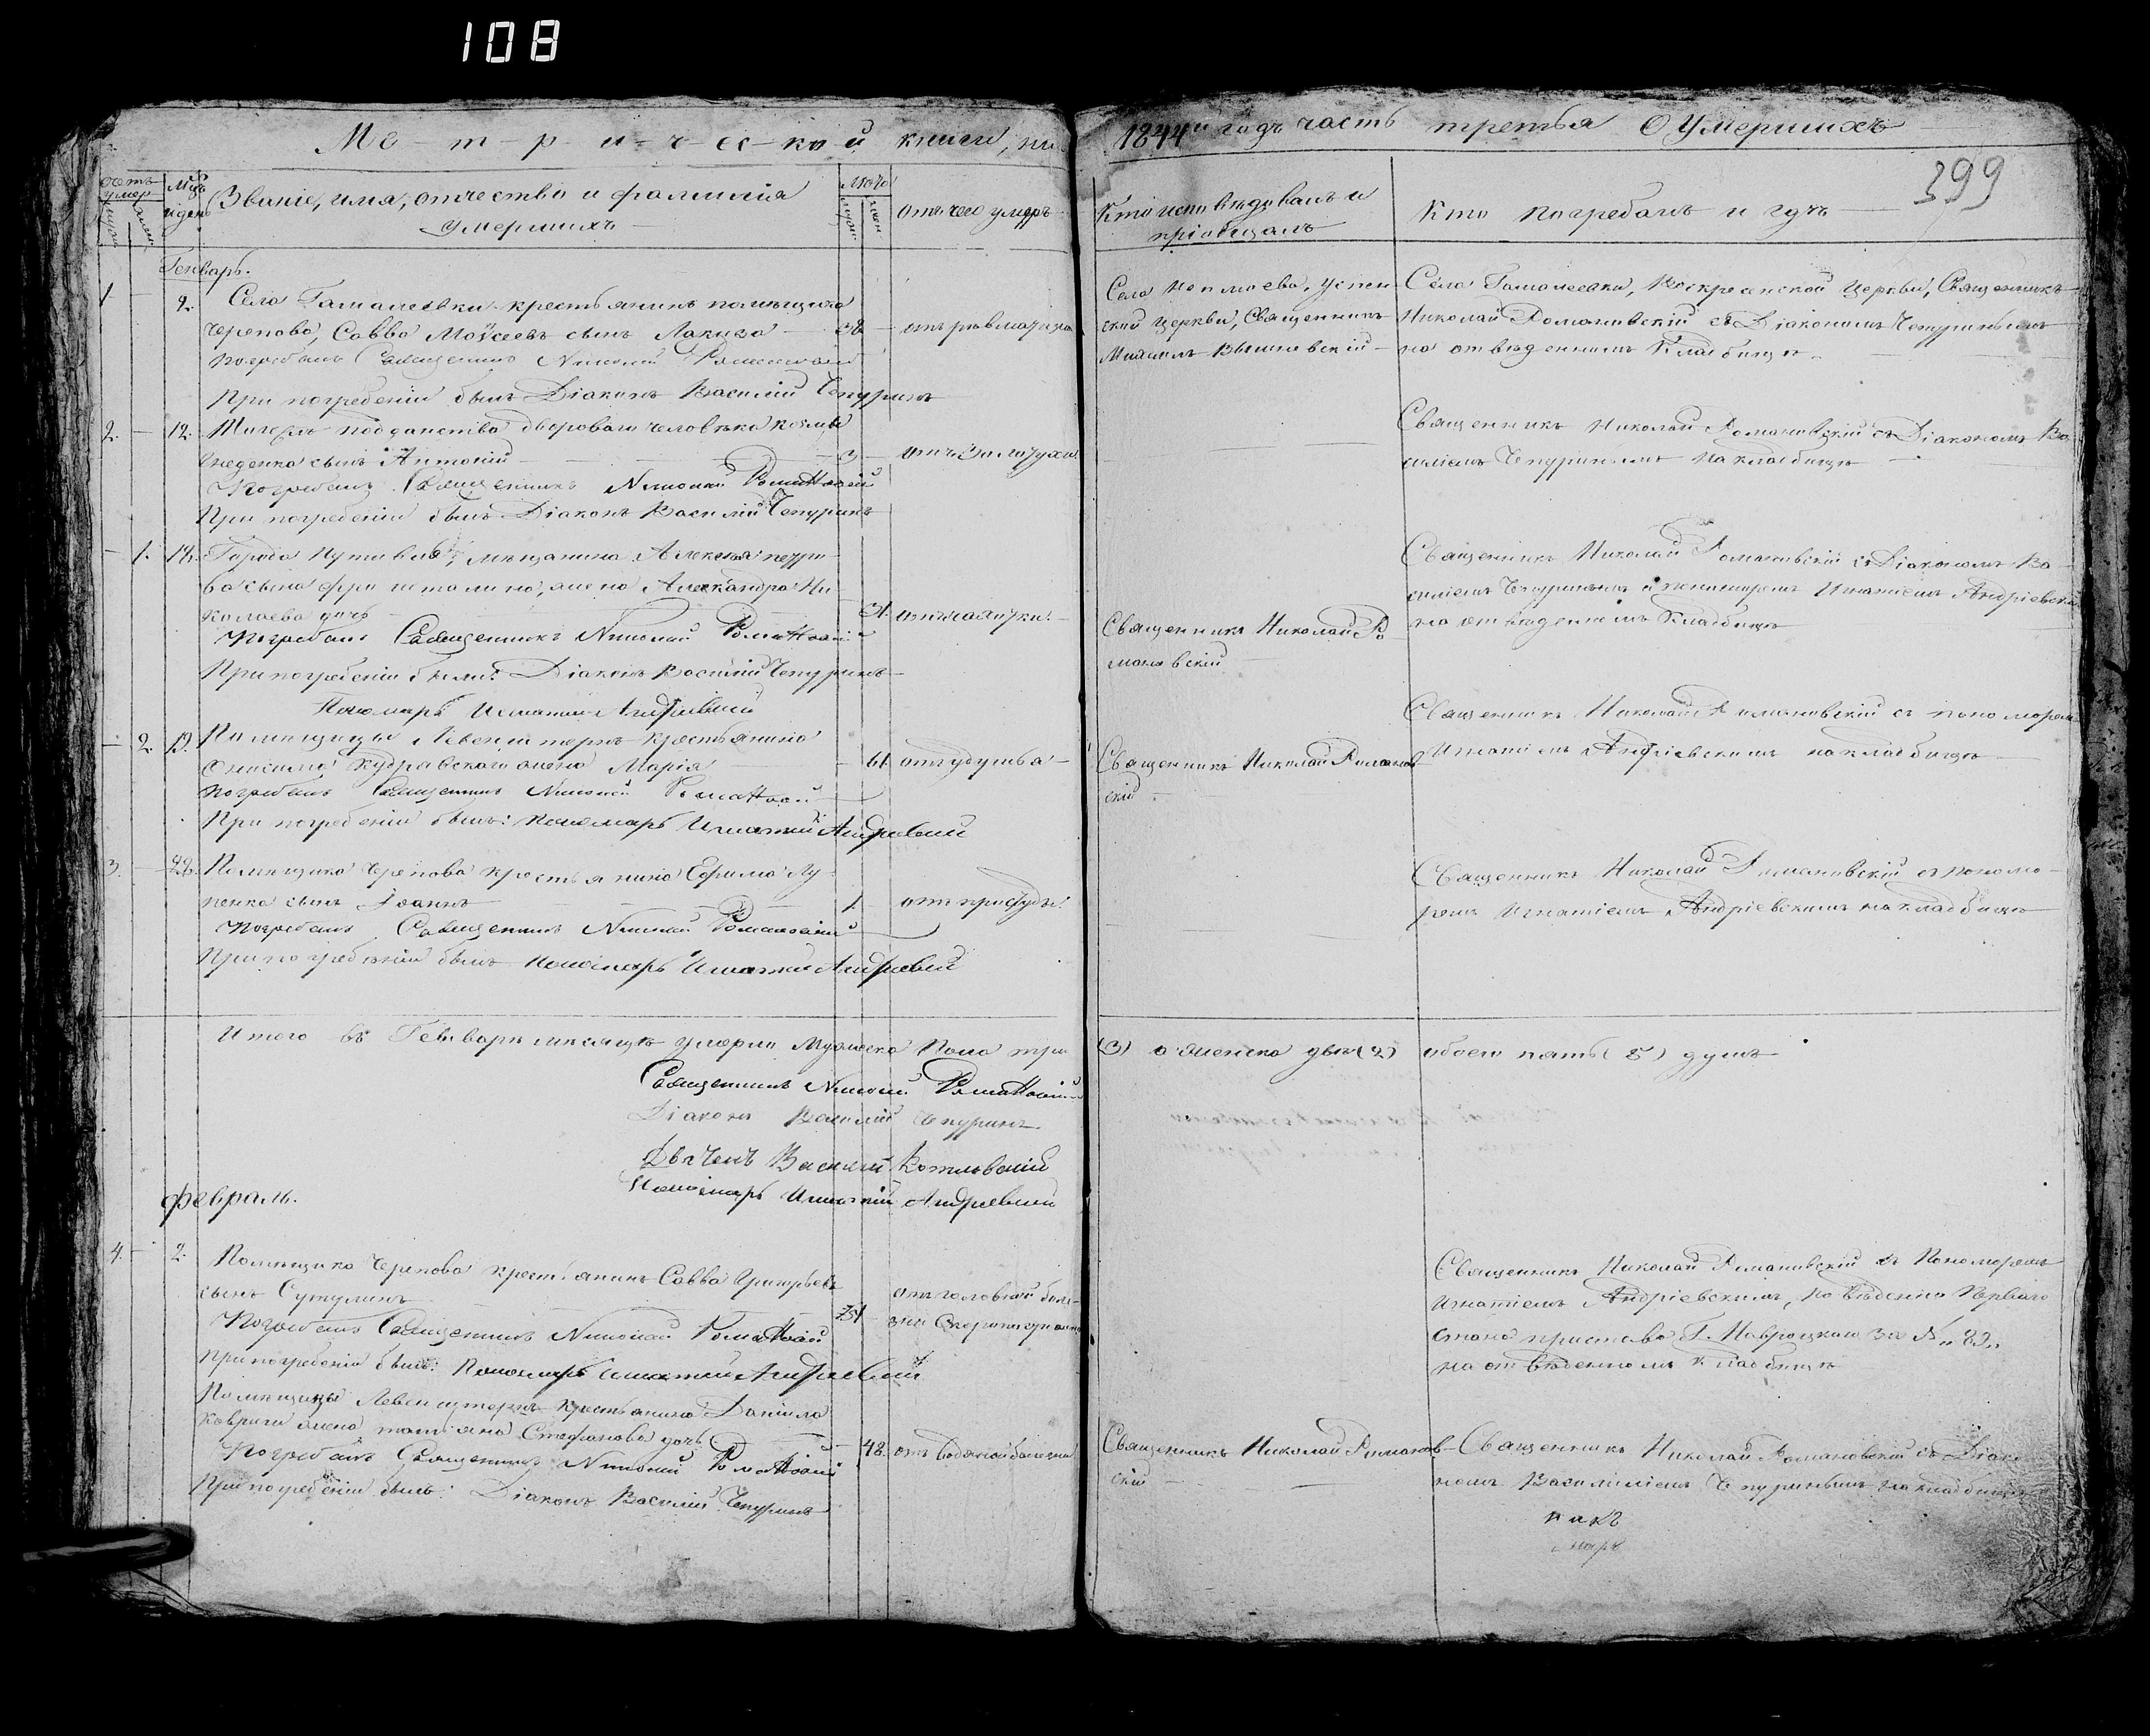 108
Ме-т-р-и-ч-ес-ко й книги, на
1844й годъ часть третья О Умершихъ
399
Званіе, имя, отчество и фамилія
умершихъ
отъ чего умеръ
Кто исповѣдовалъ и
пріобщалъ
Кто погребалъ и гдѣ
Генварь.
1 2. Села Гамалеевки крестьянинъ помѣщика
Черепова, Савва Моѵсеевъ сынъ 38
погребалъ Священникъ Николай Романовскій
При погребеніи былъ Діаконъ Василій Чепуринъ
Села Успен
ской Церкви, Священникъ
Михаилъ Вышневскій
Села Гамалеевки, Воскресенской Церкви, Священникъ
Николай Романовскій съ Діакономъ Чепуринымъ
на отведенномъ Кладбищѣ
2. 12. подданства двороваго человѣка
сынъ Антоній 3
Погребалъ Священникъ Николай Романовскій
При погребеніи былъ Діаконъ Василій Чепуринъ
Священникъ Николай Романовскій съ Діакономъ Ва
силіемъ Чепуринымъ на кладбищѣ
1. Города Путивля мѣщанина Алексея
жена Александра Ни
колаева дочь 31. отъ чахотки
Погребалъ Священникъ Николай Романовскій
При погребеніи были: Діаконъ Василій Чепуринъ
Пономарь Игнатій Андріевскій
Священникъ Николай Ро
мановскій
Священникъ Николай Романовскій съ Діакономъ Ва
силіемъ Чепуринымъ и пономаремъ Игнатіемъ Андріевскимъ
на отведенномъ Кладбищѣ
2. 19. Помѣщицы Левенштернъ крестьянина
Онисима Кудравскаго жена Марія 61 отъ удушья
Погребалъ Священникъ Николай Романовскій
При погребеніи былъ: Пономарь Игнатій Андріевскій
Священникъ Николай Романов
скій
Священникъ Николай Романовскій съ пономарем
Игнатіемъ Андріевскимъ на кладбищѣ
3. 22. Помѣщика Черепова крестьянина Ефима Лу
ценка сынъ Іоаннъ 1
Погребалъ Священникъ Николай Романовскій
При погребеніи былъ Пономарь Игнатій Андріевскій
Священникъ Николай Романовскій съ понома
ремъ Игнатіемъ Андріевскимъ на кладбищѣ
Итого въ Генварѣ мѣсяцѣ умерло Мужеска Пола три (3) а женска двѣ (2) обоего пять (5) душъ
Священникъ Николай Романовскій
Діаконъ Василій Чепуринъ
Дьячекъ Василій
Пономарь Игнатій Андріевскій
февраль.
4. 2. Помѣщика Черепова крестьянинъ Савва Григорьевъ
сынъ Сутулинъ 51
Погребалъ Священникъ Николай Романовскій
При погребеніи былъ: Пономарь Игнатій Андріевскій
отъ головной болѣ-
зни
Священникъ Николай Романовскій съ Пономаремъ
Игнатіемъ Андріевскимъ, по вѣденію Перваго
Стана пристава Г. Навроцкаго за №
на отведенномъ кладбищѣ
Помѣщицы Левенштернъ крестьянина Даніила
Коврыги жена татіана Стефанова дочь 48. отъ водяной болезни
Погребалъ Священникъ Николай Романовскій
При погребеніи былъ: Діаконъ Василій Чепуринъ
Священникъ Николай Романов
скій
Священникъ Николай Романовскій съ Діако
номъ Василиіемъ Чепуринымъ на кладбищѣ